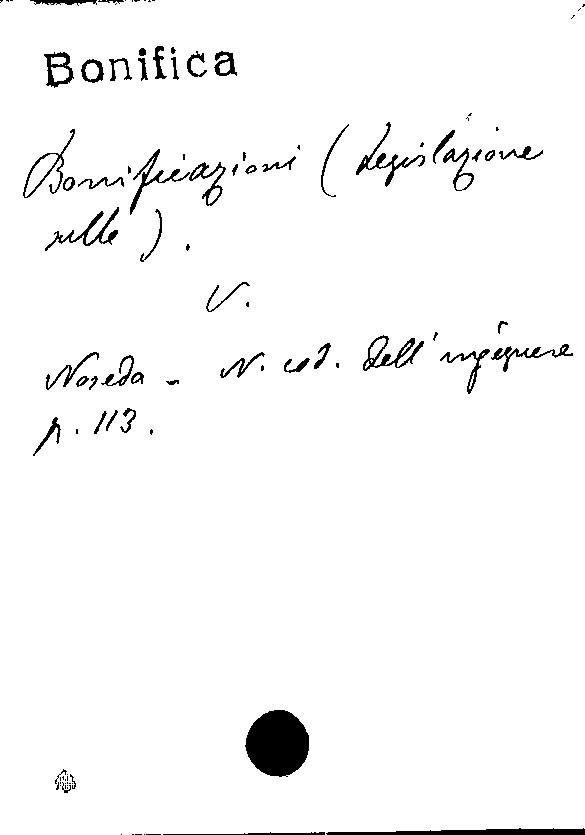 Bonifica
Bonificazioni (Legislazione
sulle).
V.
Noseda - N. cod. dell'ingegnere
p. 113.